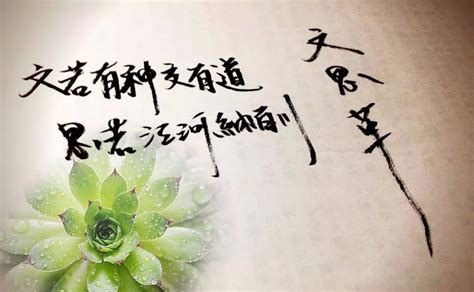 文若有神交有道
思若江河納百川
文思革